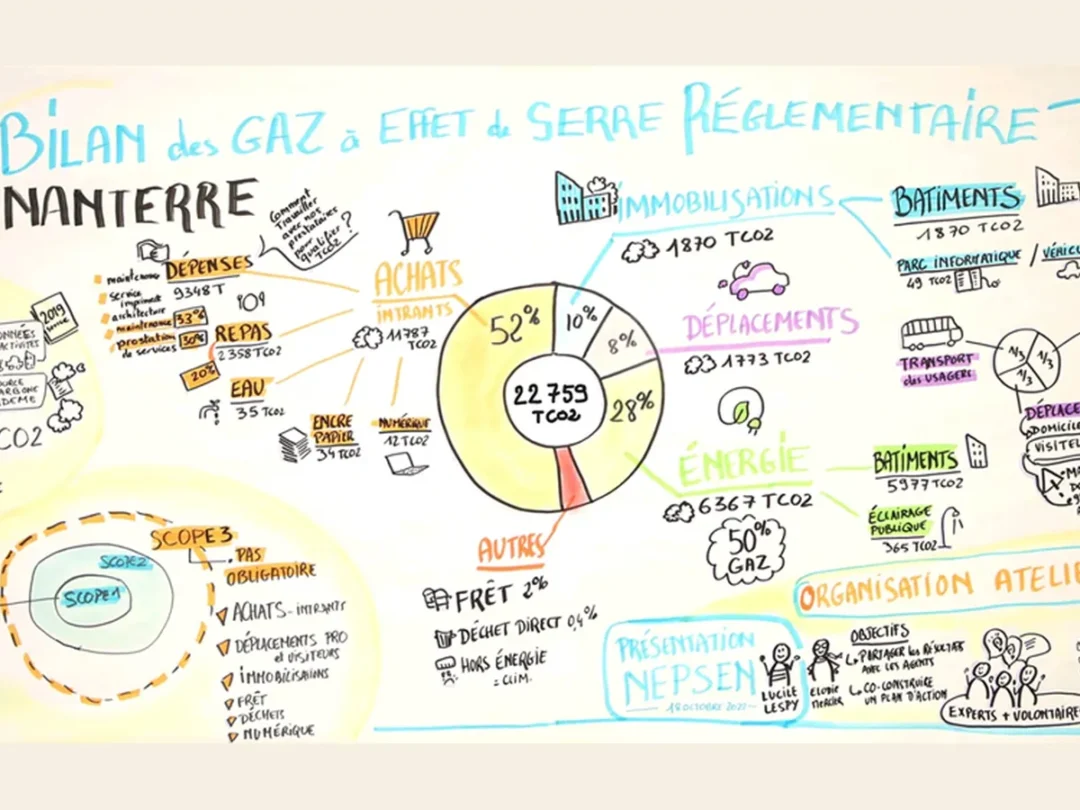 BILAN des GAZ à EFFET de SERRE RÉGLEMENTAIRE
NANTERRE
Comment
travailler
avec nos
prestataires
pour
qualifier
TCO2
?
DÉPENSES
9348T
maintenance
service
imprimant
architecture
maintenance 33%
prestation 30%
de services
REPAS
2358TCO2
20%
EAU
35 TCO2
ENCRE
PAPIER
34TCO2
NUMÉRIQUE
12TCO2
ACHATS
INTRANTS
11787
TCO2
52%
10%
8%
28%
22 759
TCO2
IMMOBILISATIONS
1870 TCO2
BATIMENTS
1870 TCO2
PARC INFORMATIQUE / VÉHICU
49 TCO2
DÉPLACEMENTS
1773 TCO2
TRANSPORT
des USAGERS
1/3
1/3
1/3
DÉPLACE
DOMICILE
VISITEU
ÉNERGIE
6367 TCO2
50%
GAZ
BATIMENTS
5977TCO2
ÉCLAIRAGE
PUBLIQUE
365 TCO2
AUTRES
FRÊT 2%
DÉCHET DIRECT 0,4%
HORS ÉNERGIE
= CLIM.
2019
ONNÉES
ACTIVITÉS
OURCE
CARBONE
DEME
CO2
SCOPE 3
SCOPE2
SCOPE1
PAS
OBLIGATOIRE
ACHATS - INTRANTS
DÉPLACEMENTS PRO
et VISITEURS
IMMOBILISATIONS
FRÊT
DÉCHETS
NUMÉRIQUE
ORGANISATION ATELIE
PRÉSENTATION
NEPSEN
18 OCTOBRE 2022
LUCILE
LESPY
ELODIE
MERCIER
OBJECTIFS
PARTAGER les RÉSULTATS
AVEC LES AGENTS
CO-CONSTRUIRE
UN PLAN D'ACTION
EXPERTS + VOLONTAIRE